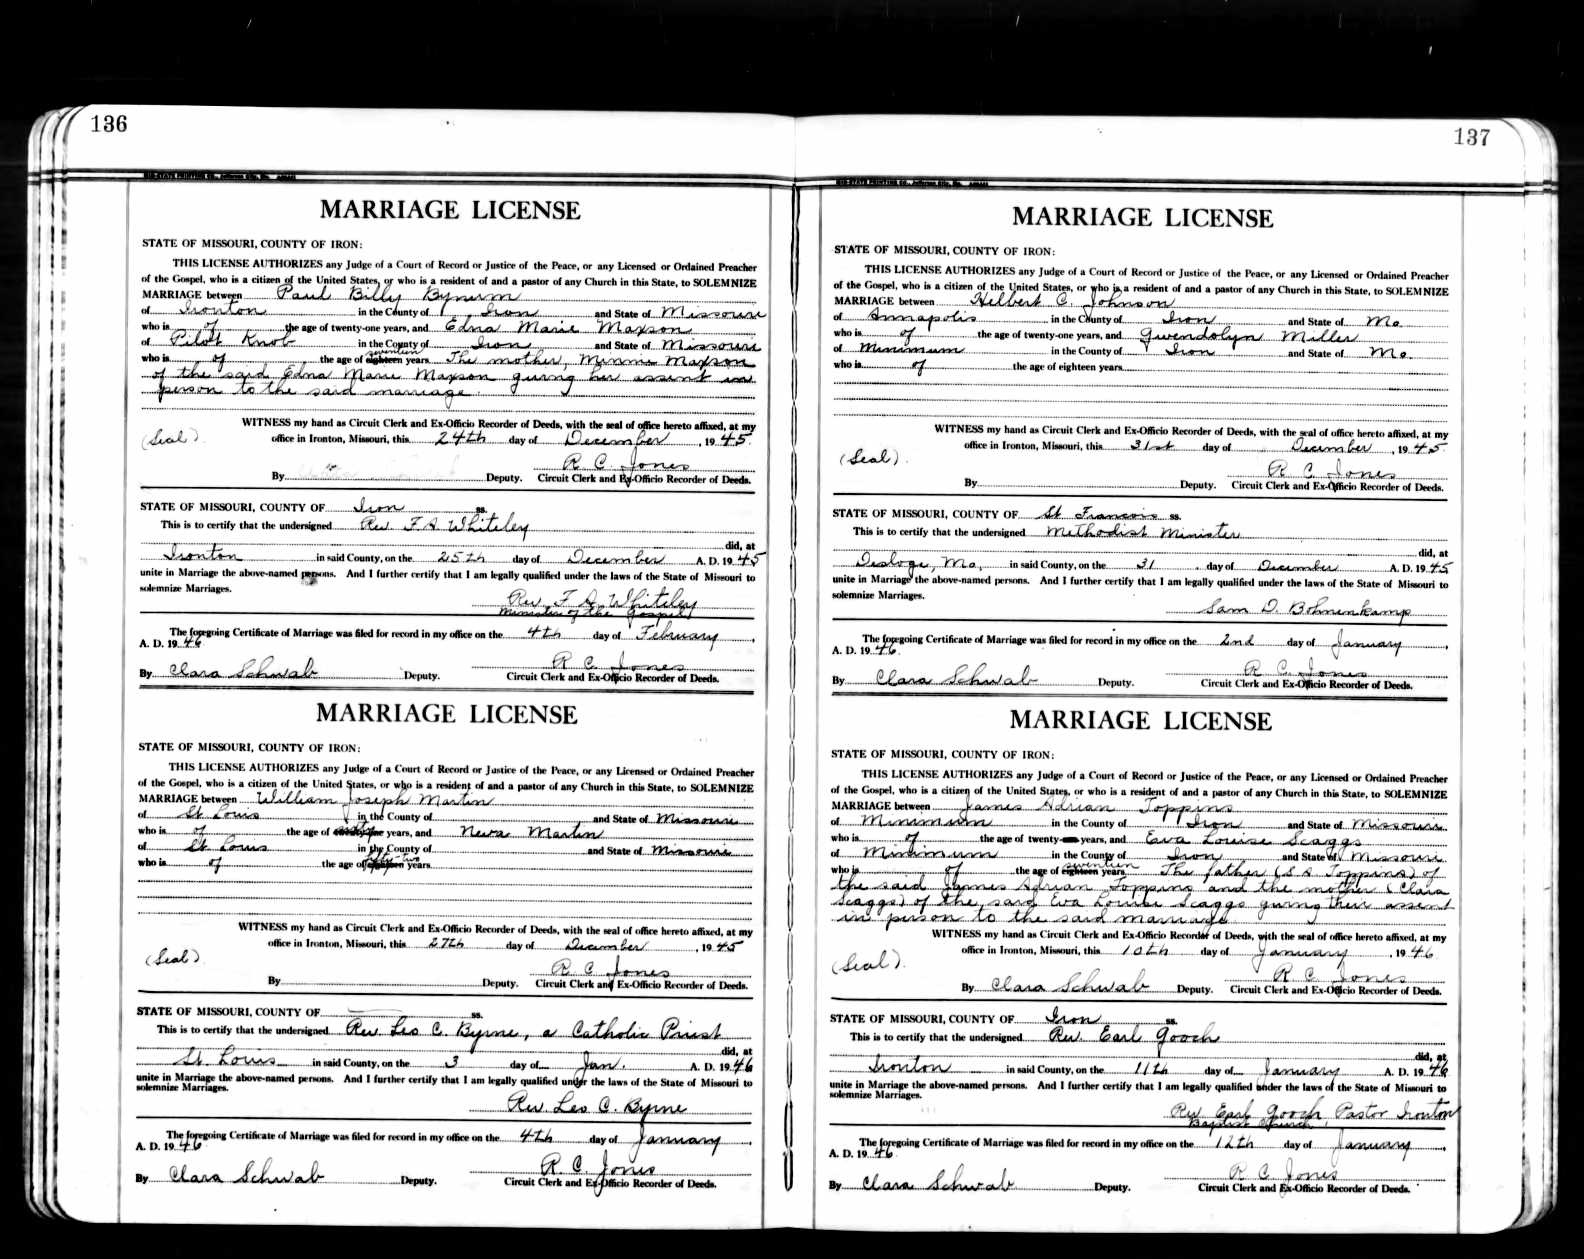 136
MID-STATE PRINTING CO., Jefferson City, Mo.
MARRIAGE LICENSE
STATE OF MISSOURI, COUNTY OF IRON:
THIS LICENSE AUTHORIZES any Judge of a Court of Record or Justice of the Peace, or any Licensed or Ordained Preacher
of the Gospel, who is a citizen of the United States, or who is a resident of and a pastor of any Church in this State, to SOLEMNIZE
MARRIAGE between Paul Billy Bynum
of Ironton in the County of Iron and State of Missouri
who is of the age of twenty-one years, and Edna Marie Maxson
of Pilot Knob in the County of Iron and State of Missouri
seventeen
who is of the age of eighteen years. The mother, Minnie Maxson
of the said Edna Marie Maxson giving her assent in
person to the said marriage.
WITNESS my hand as Circuit Clerk and Ex-Officio Recorder of Deeds, with the seal of office hereto affixed, at my
(Seal) office in Ironton, Missouri, this 24th day of December, 1945.
R. C. Jones
By Deputy. Circuit Clerk and Ex-Officio Recorder of Deeds.
STATE OF MISSOURI, COUNTY OF Iron ss.
This is to certify that the undersigned Rev F A Whiteley
did, at
Ironton in said County, on the 25th day of December A. D. 1945
unite in Marriage the above-named persons. And I further certify that I am legally qualified under the laws of the State of Missouri to
solemnize Marriages.
Rev. F. A. Whiteley
Minister of the Gospel
The foregoing Certificate of Marriage was filed for record in my office on the 4th day of February,
A. D. 1946.
R C Jones
By Clara Schwab Deputy. Circuit Clerk and Ex-Officio Recorder of Deeds.
MARRIAGE LICENSE
STATE OF MISSOURI, COUNTY OF IRON:
THIS LICENSE AUTHORIZES any Judge of a Court of Record or Justice of the Peace, or any Licensed or Ordained Preacher
of the Gospel, who is a citizen of the United States, or who is a resident of and a pastor of any Church in this State, to SOLEMNIZE
MARRIAGE between William Joseph Martin
of St Louis in the County of and State of Missouri
who is of the age of years, and Neva Martin
of St Louis in the County of and State of Missouri
fifty-two
who is of the age of eighteen years.
WITNESS my hand as Circuit Clerk and Ex-Officio Recorder of Deeds, with the seal of office hereto affixed, at my
(Seal) office in Ironton, Missouri, this 27th day of December, 1945
R C Jones
By Deputy. Circuit Clerk and Ex-Officio Recorder of Deeds.
STATE OF MISSOURI, COUNTY OF ss.
This is to certify that the undersigned Rev. Leo C. Byrne, a Catholic Priest
did, at
St. Louis in said County, on the 3 day of Jan. A. D. 1946
unite in Marriage the above-named persons. And I further certify that I am legally qualified under the laws of the State of Missouri to
solemnize Marriages.
Rev. Leo C. Byrne
The foregoing Certificate of Marriage was filed for record in my office on the 4th day of January,
A. D. 1946
R. C. Jones
By Clara Schwab Deputy. Circuit Clerk and Ex-Officio Recorder of Deeds.
137
MID-STATE PRINTING CO., Jefferson City, Mo.
MARRIAGE LICENSE
STATE OF MISSOURI, COUNTY OF IRON:
THIS LICENSE AUTHORIZES any Judge of a Court of Record or Justice of the Peace, or any Licensed or Ordained Preacher
of the Gospel, who is a citizen of the United States, or who is a resident of and a pastor of any Church in this State, to SOLEMNIZE
MARRIAGE between Hilbert C. Johnson
of Annapolis in the County of Iron and State of Mo.
who is of the age of twenty-one years, and Gwendolyn Miller
of Minimum in the County of Iron and State of Mo.
who is of the age of eighteen years.
WITNESS my hand as Circuit Clerk and Ex-Officio Recorder of Deeds, with the seal of office hereto affixed, at my
(Seal) office in Ironton, Missouri, this 31st day of December, 1945
R. C. Jones
By Deputy. Circuit Clerk and Ex-Officio Recorder of Deeds.
STATE OF MISSOURI, COUNTY OF St Francois ss.
This is to certify that the undersigned Methodist Minister
did, at
Desloge, Mo. in said County, on the 31 day of December A. D. 1945
unite in Marriage the above-named persons. And I further certify that I am legally qualified under the laws of the State of Missouri to
solemnize Marriages.
Sam D. Bohnenkamp
The foregoing Certificate of Marriage was filed for record in my office on the 2nd day of January,
A. D. 1946.
R. C. Jones
By Clara Schwab Deputy. Circuit Clerk and Ex-Officio Recorder of Deeds.
MARRIAGE LICENSE
STATE OF MISSOURI, COUNTY OF IRON:
THIS LICENSE AUTHORIZES any Judge of a Court of Record or Justice of the Peace, or any Licensed or Ordained Preacher
of the Gospel, who is a citizen of the United States, or who is a resident of and a pastor of any Church in this State, to SOLEMNIZE
MARRIAGE between James Adrian Toppins
of Minimum in the County of Iron and State of Missouri
who is of the age of twenty years, and Eva Louise Scaggs
of Minimum in the County of Iron and State of Missouri
seventeen
who is of the age of eighteen years. The father (S A Toppins) of
the said James Adrian Toppins and the mother (Clara
Scaggs) of the said Eva Louise Scaggs giving their assent
in person to the said marriage
WITNESS my hand as Circuit Clerk and Ex-Officio Recorder of Deeds, with the seal of office hereto affixed, at my
(Seal) office in Ironton, Missouri, this 10th day of January, 1946
R. C. Jones
By Clara Schwab Deputy. Circuit Clerk and Ex-Officio Recorder of Deeds.
STATE OF MISSOURI, COUNTY OF Iron ss.
This is to certify that the undersigned Rev. Earl Gooch
did, at
Ironton in said County, on the 11th day of January A. D. 1946
unite in Marriage the above-named persons. And I further certify that I am legally qualified under the laws of the State of Missouri to
solemnize Marriages.
Rev Earl Gooch, Pastor Ironton
Baptist Church
The foregoing Certificate of Marriage was filed for record in my office on the 12th day of January,
A. D. 1946.
R C Jones
By Clara Schwab Deputy. Circuit Clerk and Ex-Officio Recorder of Deeds.